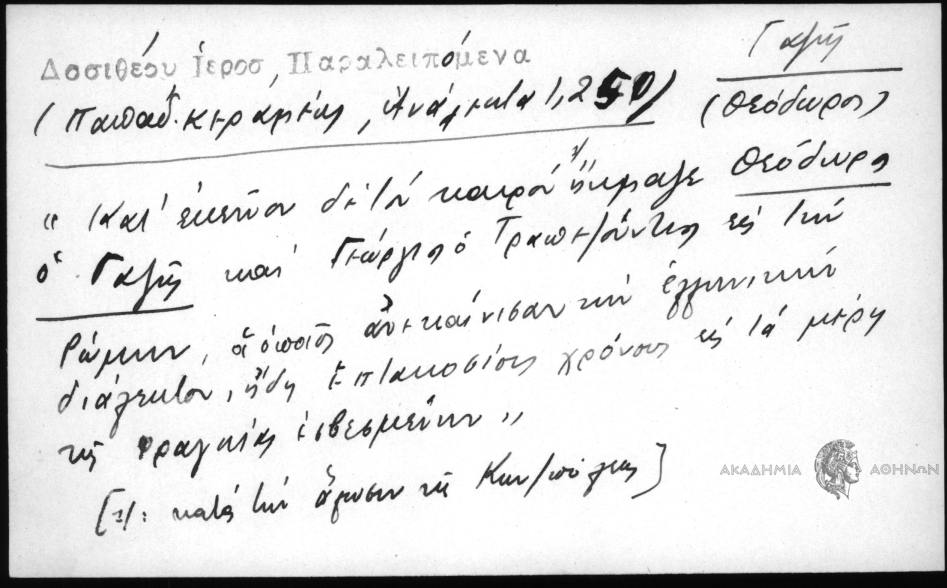 Γαζῆς
Δοσιθέου Ἱεροσ, Παραλειπόμενα
(Παπαδ. Κεραμεύς, Ἀνάλεκτα 1, 250) (Θεόδωρος)
"Κατ' ἐκεῖνον δὲ τὸν καιρὸν ἤκμαζε Θεόδωρος
ὁ Γαζῆς καὶ Γεώργιος ὁ Τραπεζούντιος εἰς τὴν
Ρώμην, οἱ ὁποῖοι ἀνεκαίνισαν τὴν ἑλληνικὴν
διάλεκτον, ἤδη ἑπτακοσίους χρόνους εἰς τὰ μέρη
τῆς Φραγκίας ἐσβεσμένην"
κατὰ τὴν ἅλωσιν τῆς Κων/πόλεως]
ΑΚΑΔΗΜΙΑ ΑΘΗΝΩΝ